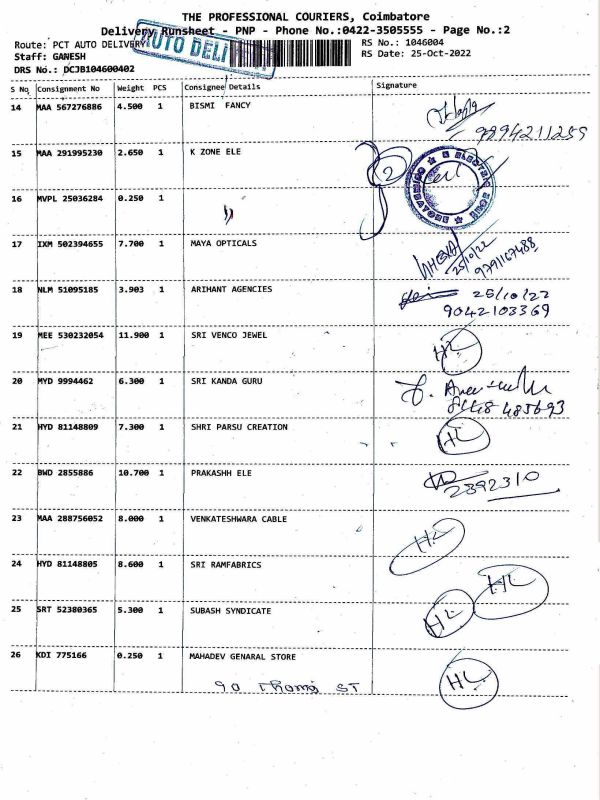 THE PROFESSIONAL COURIERS, Coimbatore
Delivery Runsheet - PNP - Phone No.:0422-3505555 - Page No.:2
Route: PCT AUTO DELIVERY
AUTO DELI
RS No.: 1046004
Staff: GANESH
RS Date: 25-Oct-2022
DRS No.: DCJB104600402
S No Consignment No Weight PCS Consignee Details Signature
14 MAA 567276886 4.500 1 BISMI FANCY
9894211259
15 MAA 291995230 2.650 1 K ZONE ELE
2
16 MVPL 25036284 0.250 1
17 IXM 502394655 7.700 1 MAYA OPTICALS
25/10/22
9791167488
18 NLM 51095185 3.903 1 ARIHANT AGENCIES
25/10/22
9042103369
19 MEE 530232054 11.900 1 SRI VENCO JEWEL
HL
20 MYD 9994462 6.300 1 SRI KANDA GURU
21 HYD 81148809 7.300 1 SHRI PARSU CREATION
HL
22 BWD 2855886 10.700 1 PRAKASHH ELE
2392310
23 MAA 288756052 8.000 1 VENKATESHWARA CABLE
HL
24 HYD 81148805 8.600 1 SRI RAMFABRICS
HL
25 SRT 52380365 5.300 1 SUBASH SYNDICATE
HL
26 KDI 775166 0.250 1 MAHADEV GENARAL STORE
HL
90 Thomas ST